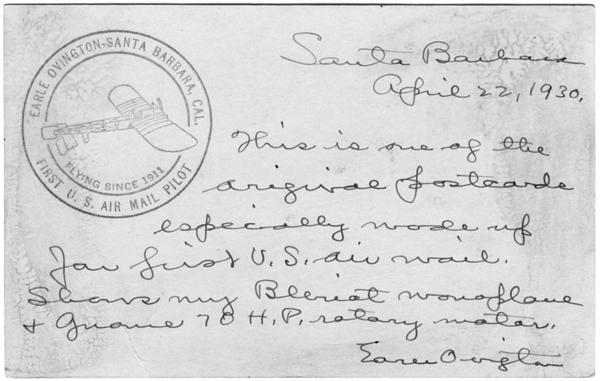 EARLE OVINGTON-SANTA BARBARA, CAL.
FLYING SINCE 1911
FIRST U. S. AIR MAIL PILOT
Santa Barbara
April 22, 1930.
This is one of the
original postcards
especially made up
for first U.S. air mail.
Shows my Bleriot monoplane
& Gnome 70 H.P. rotary motor.
Earle Ovington